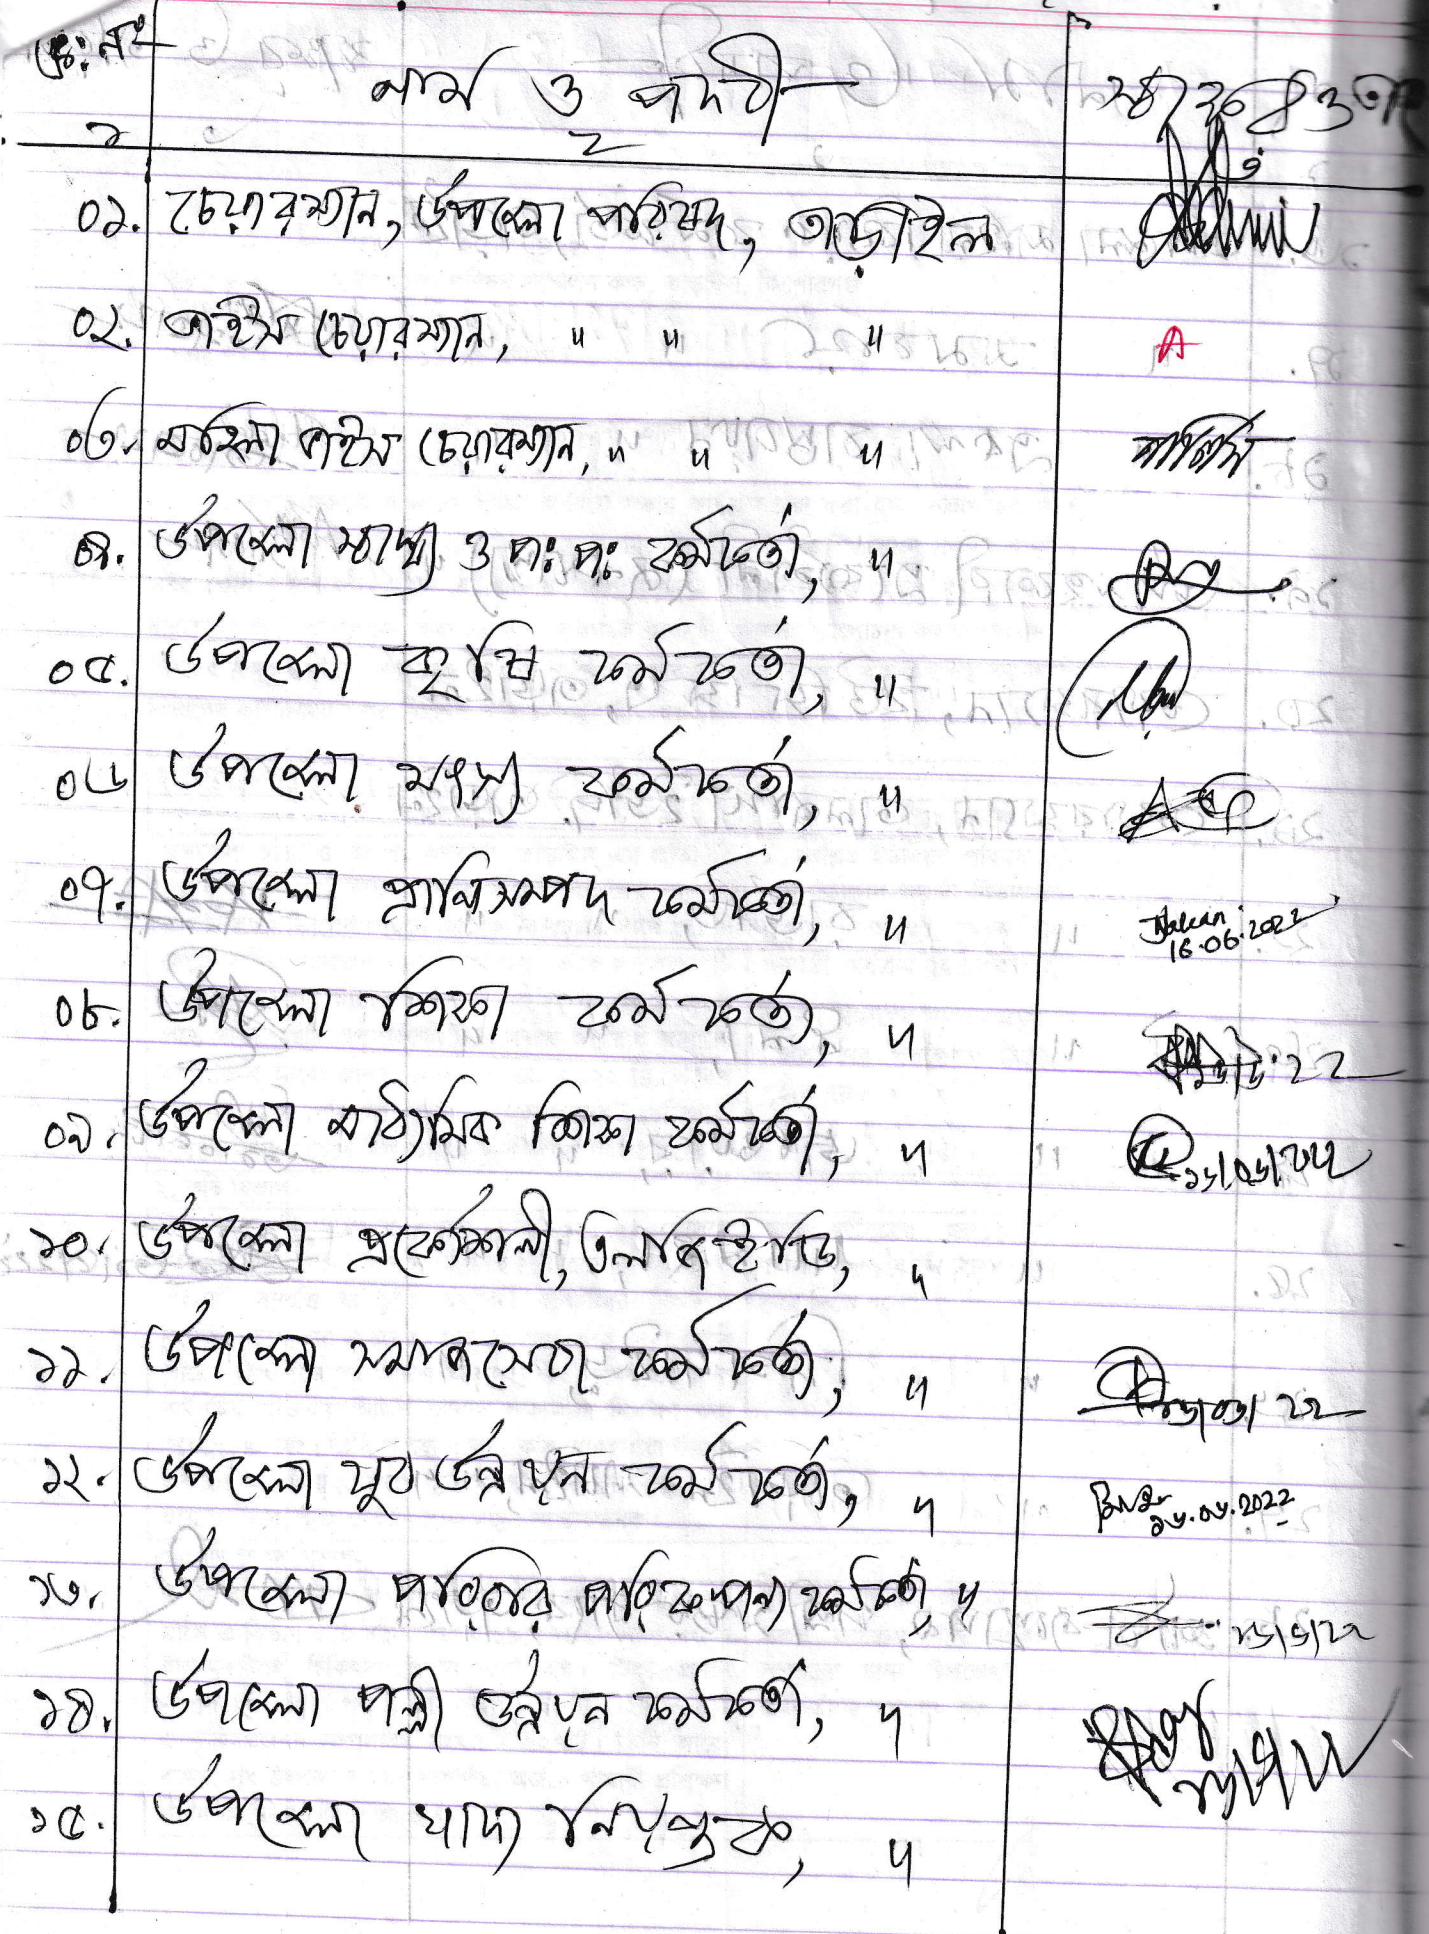 ক্রঃ নং নাম ও পদবী স্বাক্ষর ও তাং
১ ২ ৩
০১. চেয়ারম্যান, উপজেলা পরিষদ, তাড়াইল
০২. ভাইস চেয়ারম্যান, " " " A
০৩. মহিলা ভাইস চেয়ারম্যান, " " "
০৪. উপজেলা স্বাস্থ্য ও পঃ পঃ কর্মকর্তা, "
০৫. উপজেলা কৃষি কর্মকর্তা, "
০৬ উপজেলা মৎস্য কর্মকর্তা, "
০৭. উপজেলা প্রাণিসম্পদ কর্মকর্তা, "
16.06.2022
০৮. উপজেলা শিক্ষা কর্মকর্তা, "
০৯. উপজেলা মাধ্যমিক শিক্ষা কর্মকর্তা, " ১৬/০৬/২০২২
১০. উপজেলা প্রকৌশলী, এলজিইডি, "
১১. উপজেলা সমাজসেবা কর্মকর্তা, " ১৬/০৬/২২
১২. উপজেলা যুব উন্নয়ন কর্মকর্তা, "
১৬.০৬.2022
১৩. উপজেলা পরিবার পরিকল্পনা কর্মকর্তা, " ১৬/৬/২২
১৪. উপজেলা পল্লী উন্নয়ন কর্মকর্তা, "
১৫. উপজেলা খাদ্য নিয়ন্ত্রক, "